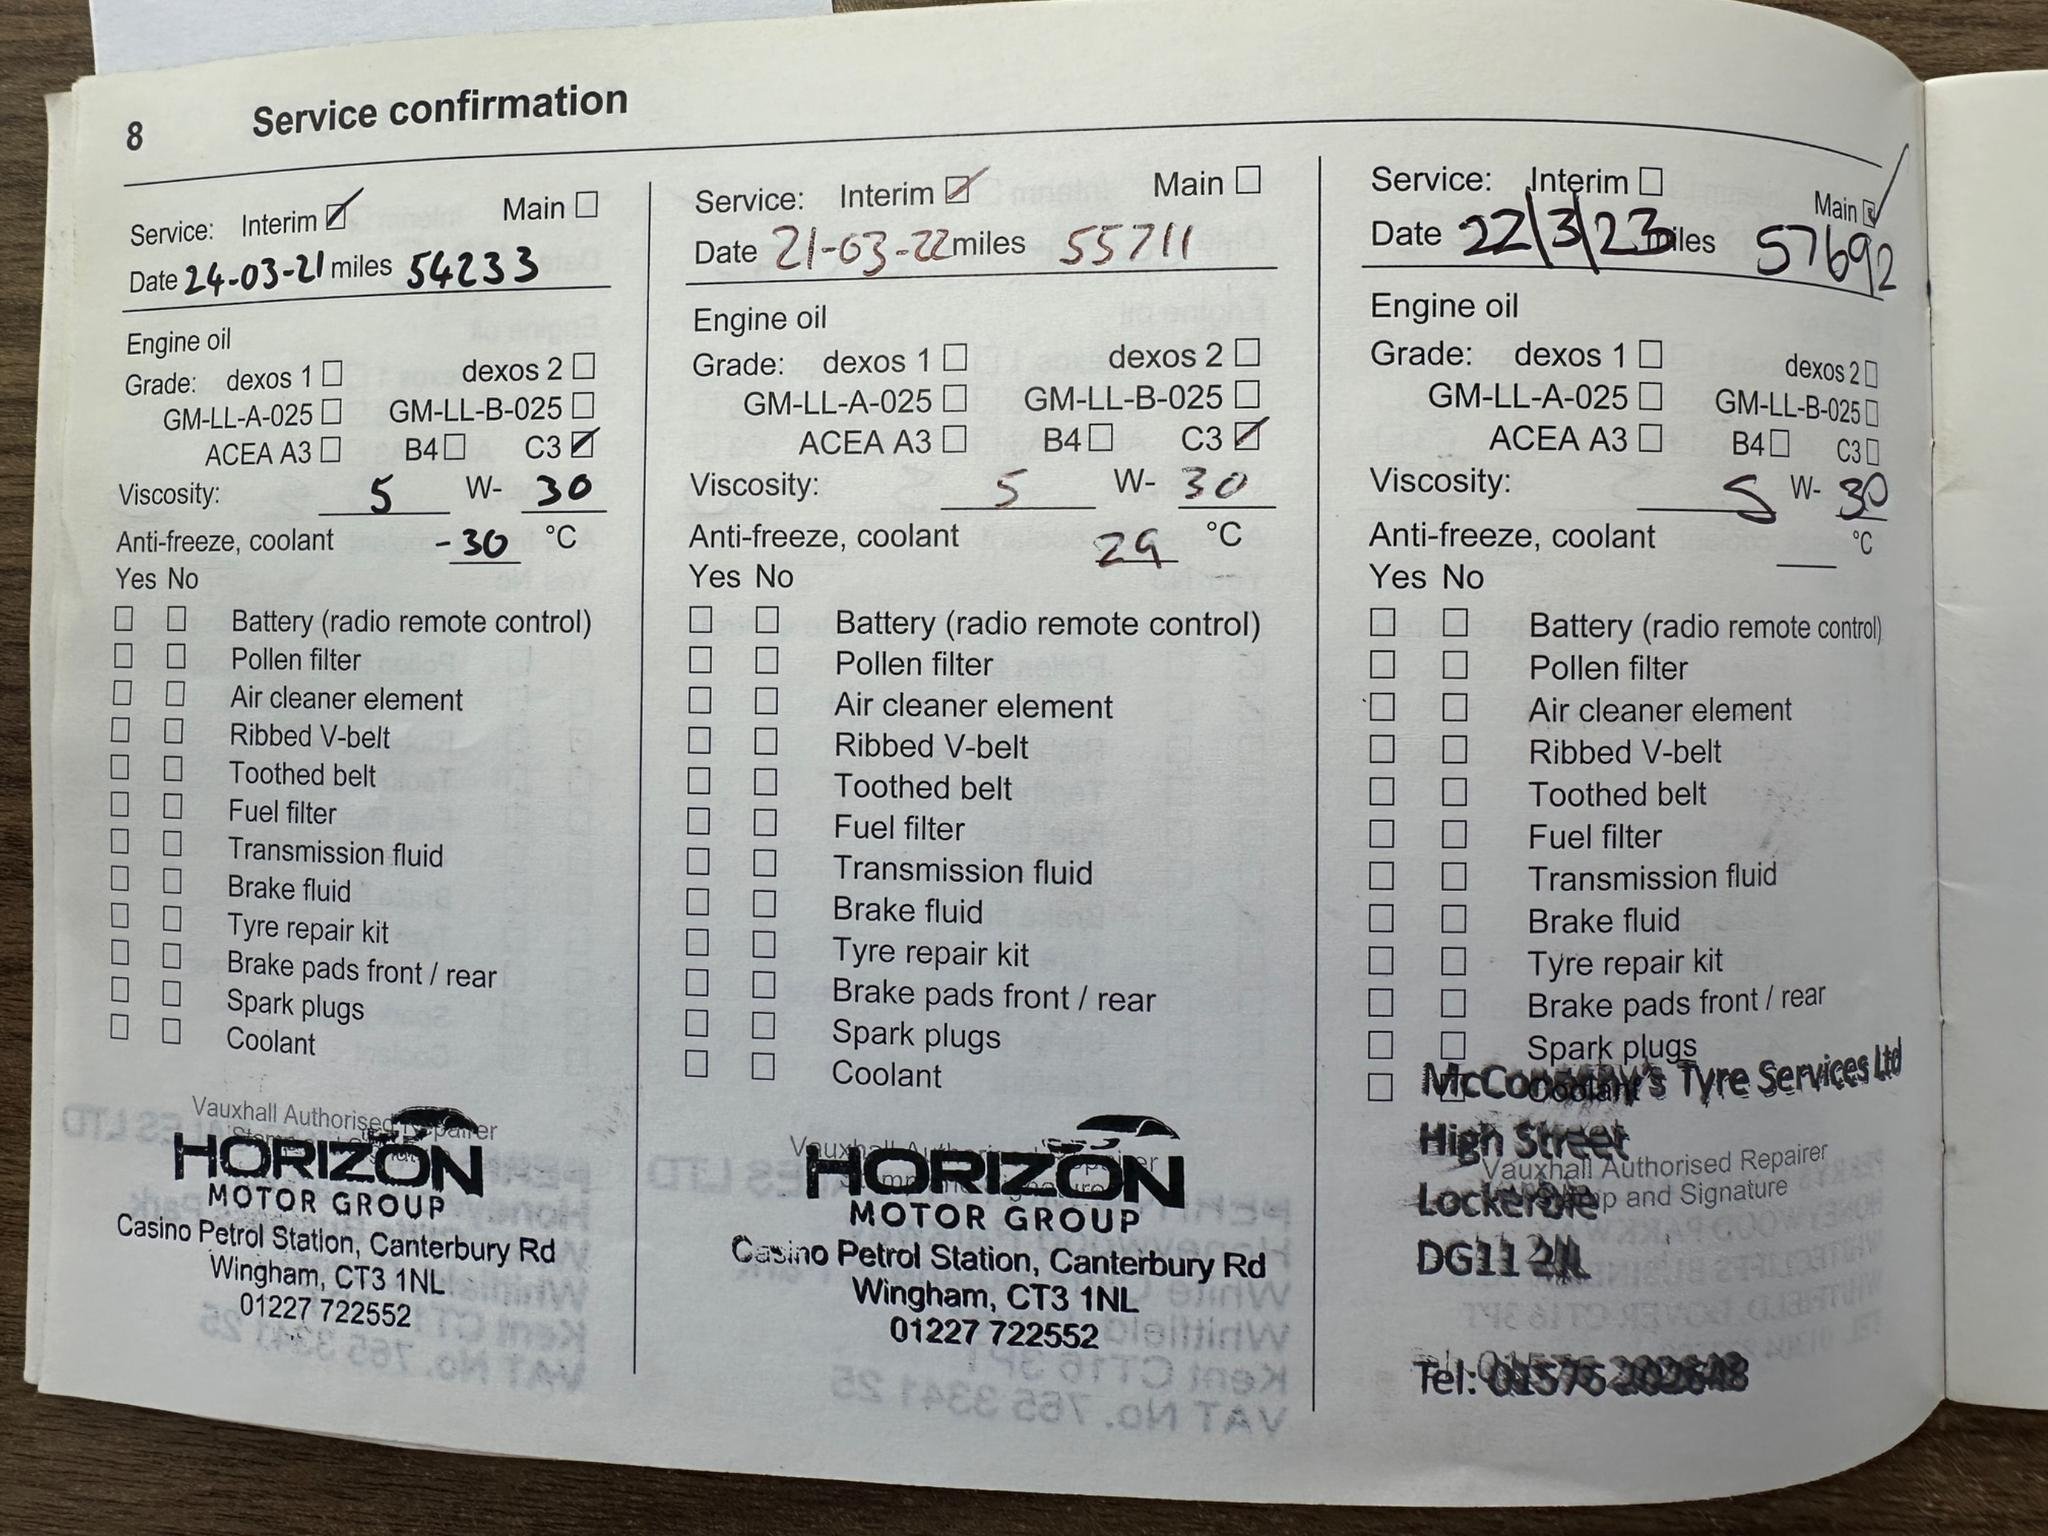 8 Service confirmation
Service: Interim Main
Date 24-03-21 miles 54233
Engine oil
Grade: dexos 1 dexos 2
GM-LL-A-025 GM-LL-B-025
ACEA A3 B4 C3
Viscosity: 5 W- 30
Anti-freeze, coolant -30 °C
Yes No
Battery (radio remote control)
Pollen filter
Air cleaner element
Ribbed V-belt
Toothed belt
Fuel filter
Transmission fluid
Brake fluid
Tyre repair kit
Brake pads front / rear
Spark plugs
Coolant
Vauxhall Authorised Repairer
HORIZON
MOTOR GROUP
Casino Petrol Station, Canterbury Rd
Wingham, CT3 1NL
01227 722552
Service: Interim Main
Date 21-03-22 miles 55711
Engine oil
Grade: dexos 1 dexos 2
GM-LL-A-025 GM-LL-B-025
ACEA A3 B4 C3
Viscosity: 5 W- 30
Anti-freeze, coolant 29 °C
Yes No
Battery (radio remote control)
Pollen filter
Air cleaner element
Ribbed V-belt
Toothed belt
Fuel filter
Transmission fluid
Brake fluid
Tyre repair kit
Brake pads front / rear
Spark plugs
Coolant
Vauxhall Authorised Repairer
HORIZON
MOTOR GROUP
Casino Petrol Station, Canterbury Rd
Wingham, CT3 1NL
01227 722552
Service: Interim Main
Date 22/3/23 miles 57692
Engine oil
Grade: dexos 1 dexos 2
GM-LL-A-025 GM-LL-B-025
ACEA A3 B4 C3
Viscosity: 5 W- 30
Anti-freeze, coolant °C
Yes No
Battery (radio remote control)
Pollen filter
Air cleaner element
Ribbed V-belt
Toothed belt
Fuel filter
Transmission fluid
Brake fluid
Tyre repair kit
Brake pads front / rear
Spark plugs
Coolant
McConechy's Tyre Services Ltd
High Street
Vauxhall Authorised Repairer
Lockerbie
and Signature
DG11
Tel: 01576